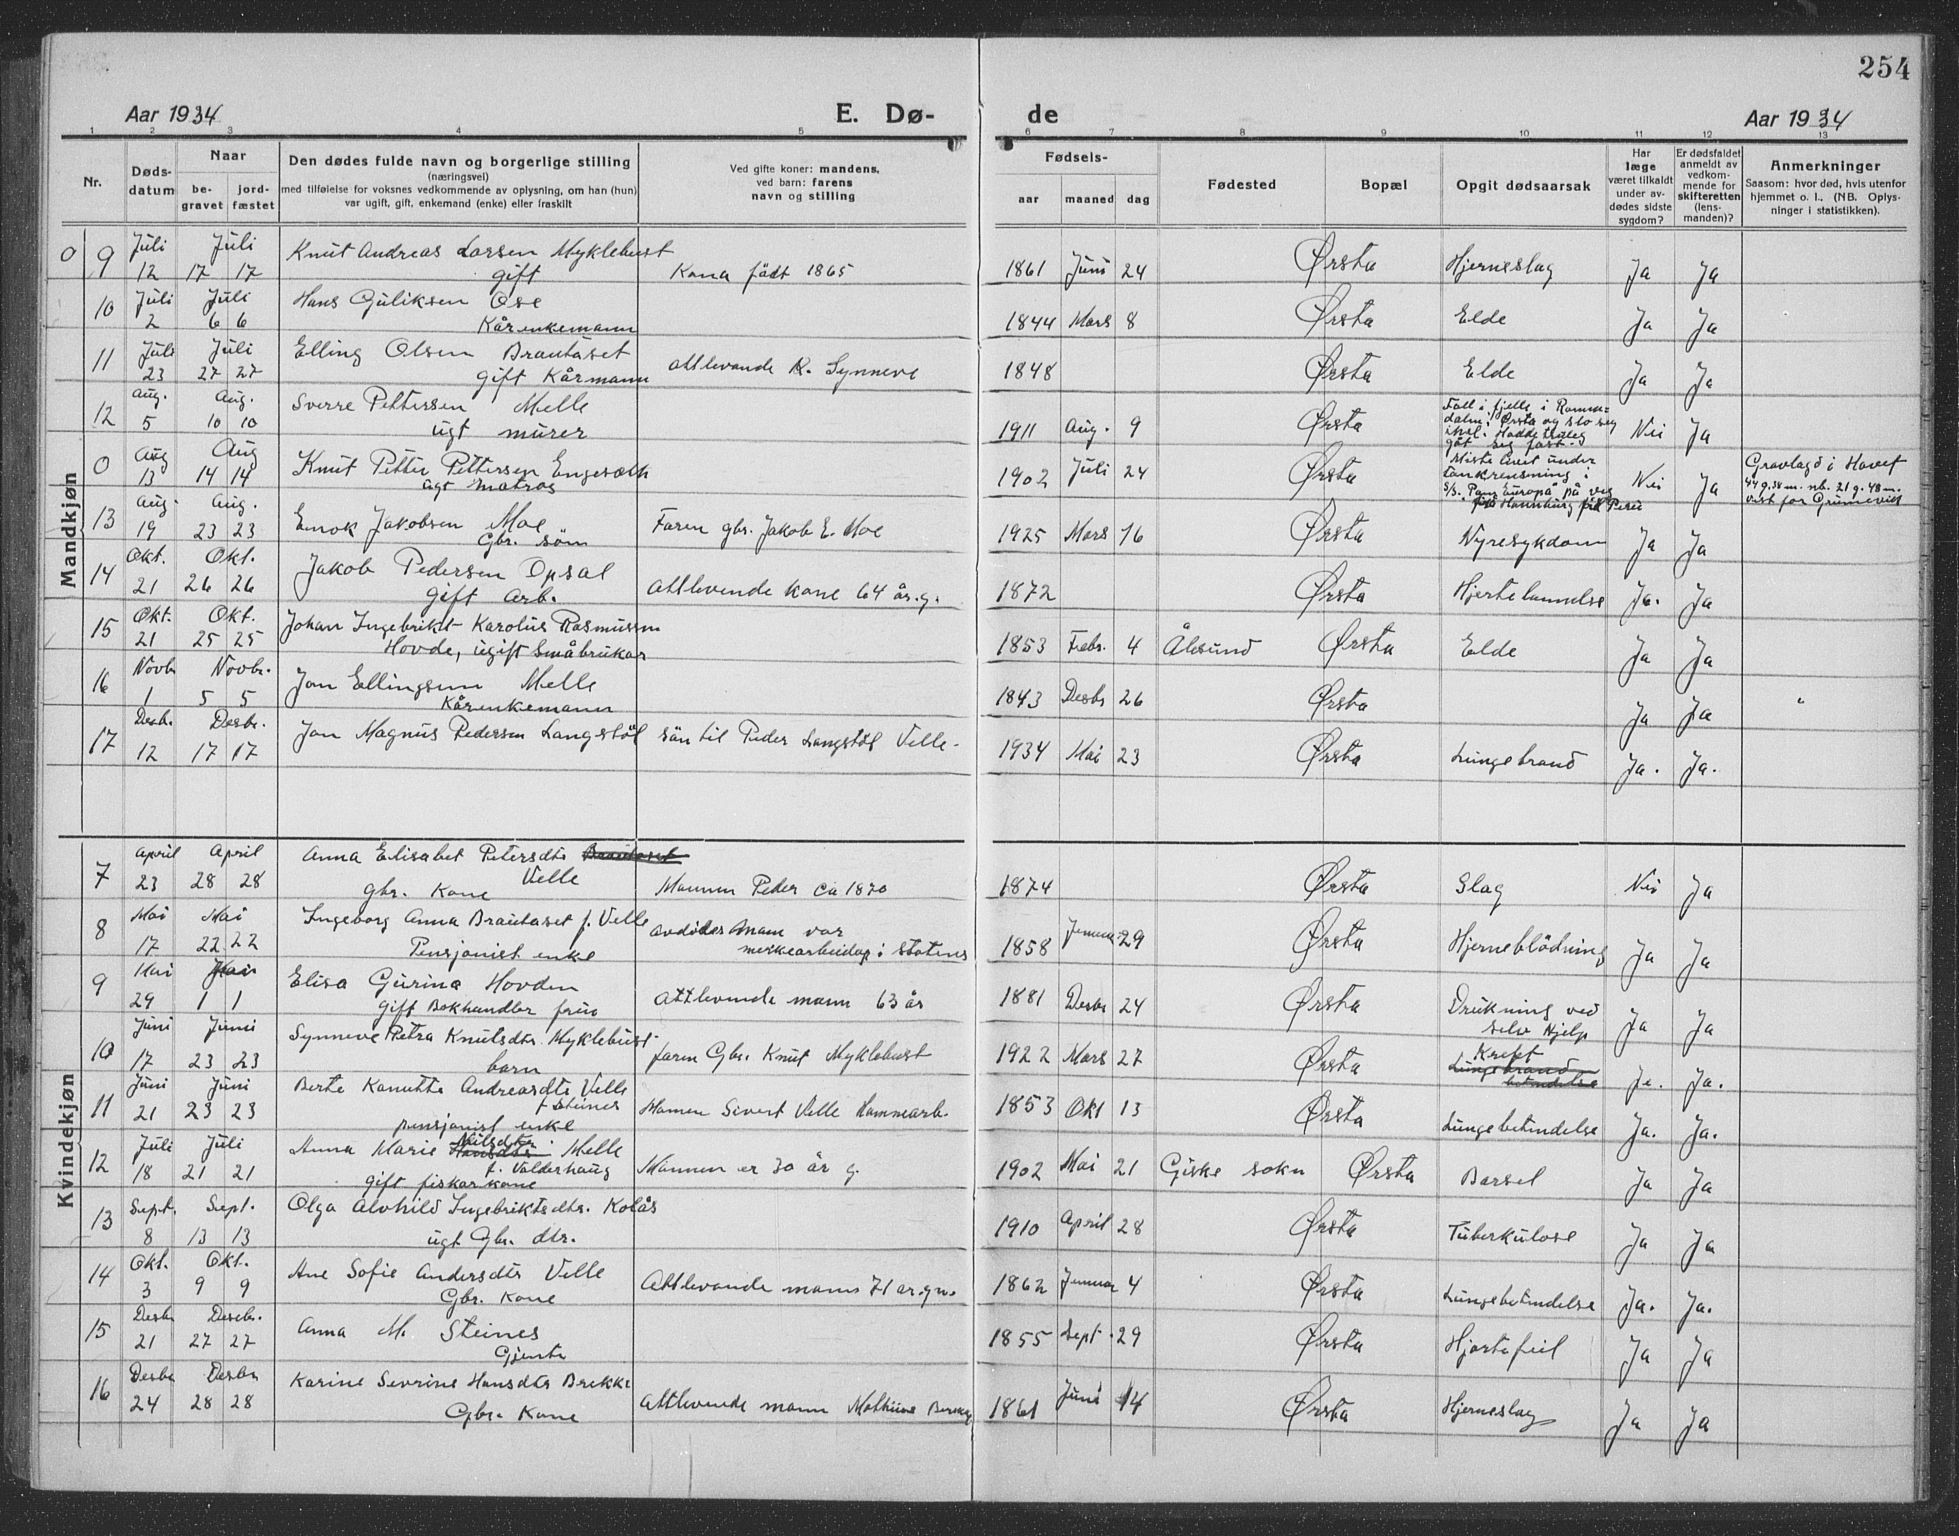 254
Aar 1934 E. Dø- de Aar 1934
1 2 3 4 5 6 7 8 9 10 11 12 13
Nr. Døds-datum Naar be-gravet jord-fæstet Den dødes fulde navn og borgerlige stilling (næringsvei) med tilføielse for voksnes vedkommende av oplysning, om han (hun) var ugift, gift, enkemand (enke) eller fraskilt Ved gifte koner: mandens, ved barn: farens navn og stilling Fødsels- aar maaned dag Fødested Bopæl Opgit dødsaarsak Har læge været tilkaldt under av-dødes sidste sygdom? Er dødsfaldet anmeldt av vedkom-mende for skifteretten (lens-manden)? Anmerkninger Saasom: hvor død, hvis utenfor hjemmet o. l., (NB. Oplys-ninger i statistikken).
Mandkjøn
0 9 Juli Juli Knut Andreas Larsen Myklebust
12 17 17 gift Kona född 1865 1861 Juni 24 Ørsta Hjerneslag Ja Ja
10 Juli Juli Hans Guliksen Ose
2 6 6 Kårenkemann 1844 Mars 8 Ørsta Elde Ja Ja
11 Juli Juli Elling Olsen Brautaset
23 27 27 gift Kårmann attlevande K. Synneve 1848 Ørsta Elde Ja Ja
12 Aug. Aug. Sverre Pettersen Melle
5 10 10 ugt murer 1911 Aug. 9 Ørsta Fall i fjelle i Romm=
dalen i Ørsta og slo seg
ihel. Hadde truleg
gåt seg fast Nei Ja
0 Aug Aug Knut Petter Pettersen Engeseth
13 14 14 ugt matros 1902 Juli 24 Ørsta Miste livet under
tankrensning i
S/S. Pan Europa på veg
frå Hamburg til Peru Nei Ja Gravlagd i Havet
44 g. 38 m. nb. 21 g. 48 m.
vest for Grunevich
13 Aug. Aug. Enok Jakobsen Moe
19 23 23 Gbr. sön Faren gbr. Jakob E. Moe 1925 Mars 16 Ørsta Nyresykdom Ja Ja
14 Okt. Okt. Jakob Pedersen Opsal
21 26 26 gift Arb. Attlevende kone 64 år. g. 1872 Ørsta Hjertelammelse Ja. Ja
15 Okt. Okt. Johan Ingebrikt Karolus Rasmussen
21 25 25 Hovde, ugift Småbrukar 1853 Febr. 4 Ålesund Ørsta Elde Ja Ja
16 Novbr Novbr. Jon Ellingsen Melle
1 5 5 Kårenkemann 1843 Desbr 26 Ørsta Ja Ja
17 Desb. Desbr. Jon Magnus Pedersen Langstöl sön til Peder Langstöl Velle.
12 17 17 1934 Mai 23 Ørsta Lungebrand Ja. Ja.
Kvindekjøn
7 April April Anna Elisabet Petersdtr Brautaset
Velle
23 28 28 gbr. Kone Mannen Peder ca 1870 1874 Ørsta Slag Nei Ja
8 Mai Mai Ingeborg Anna Brautaset f. Velle
17 22 22 Pensjonist enke Avdödes Mann var
merkearbeidar i statens 1858 Januar 29 Ørsta Hjerneblödning Ja Ja
9 Mai Elisa Gurina Hovden
29 1 1 gift Bokhandler frue Attlevende mann 63 år 1881 Desbr 24 Ørsta Drukning ved
selv Hjelp Ja Ja
10 Juni Juni Synneve Petra Knutsdtr. Myklebust
17 23 23 barn faren Gbr. Knut Myklebust 1922 Mars 27 Ørsta Kreft
Lungebrand
betendelse Ja. Ja.
11 Juni Juni Berte Kanutte Andreasdtr Velle
f Steines
21 23 23 pensjonist enke Mannen Sivert Velle Hammarb. 1853 Okt 13 Ørsta Lungebetendelse Ja. Ja.
12 Juli Juli Anna Marie Nilsdtr. Hansdtr. Melle
f. Valderhaug
18 21 21 gift fiskarkone Mannen er 30 år g. 1902 Mai 21 Giske sokn Ørsta Barsel Ja Ja
13 Sept. Sept. Olga Alvhild Ingebriktsdtr. Kolås
8 13 13 ugt Gbr. dtr. 1910 April 28 Ørsta Tuberkulose Ja Ja
14 Okt. Okt. Ane Sofie Andersdtr Velle
3 9 9 Gbr. Kone Attlevande mann 71 ar. gm. 1862 Januar 4 Ørsta Lungebetendelse Ja. Ja.
15 Desbr Desebr. Anna M. Steines
21 27 27 Gjente 1855 Sept. 29 Ørsta Hjartefeil Ja Ja
16 Desbr Desbr Karine Severine Hansdtr Brekke
24 28 28 Gbr. Kone Attlevende mann Mathias 1861 Juni 14 Ørsta Hjerneslag Ja Ja